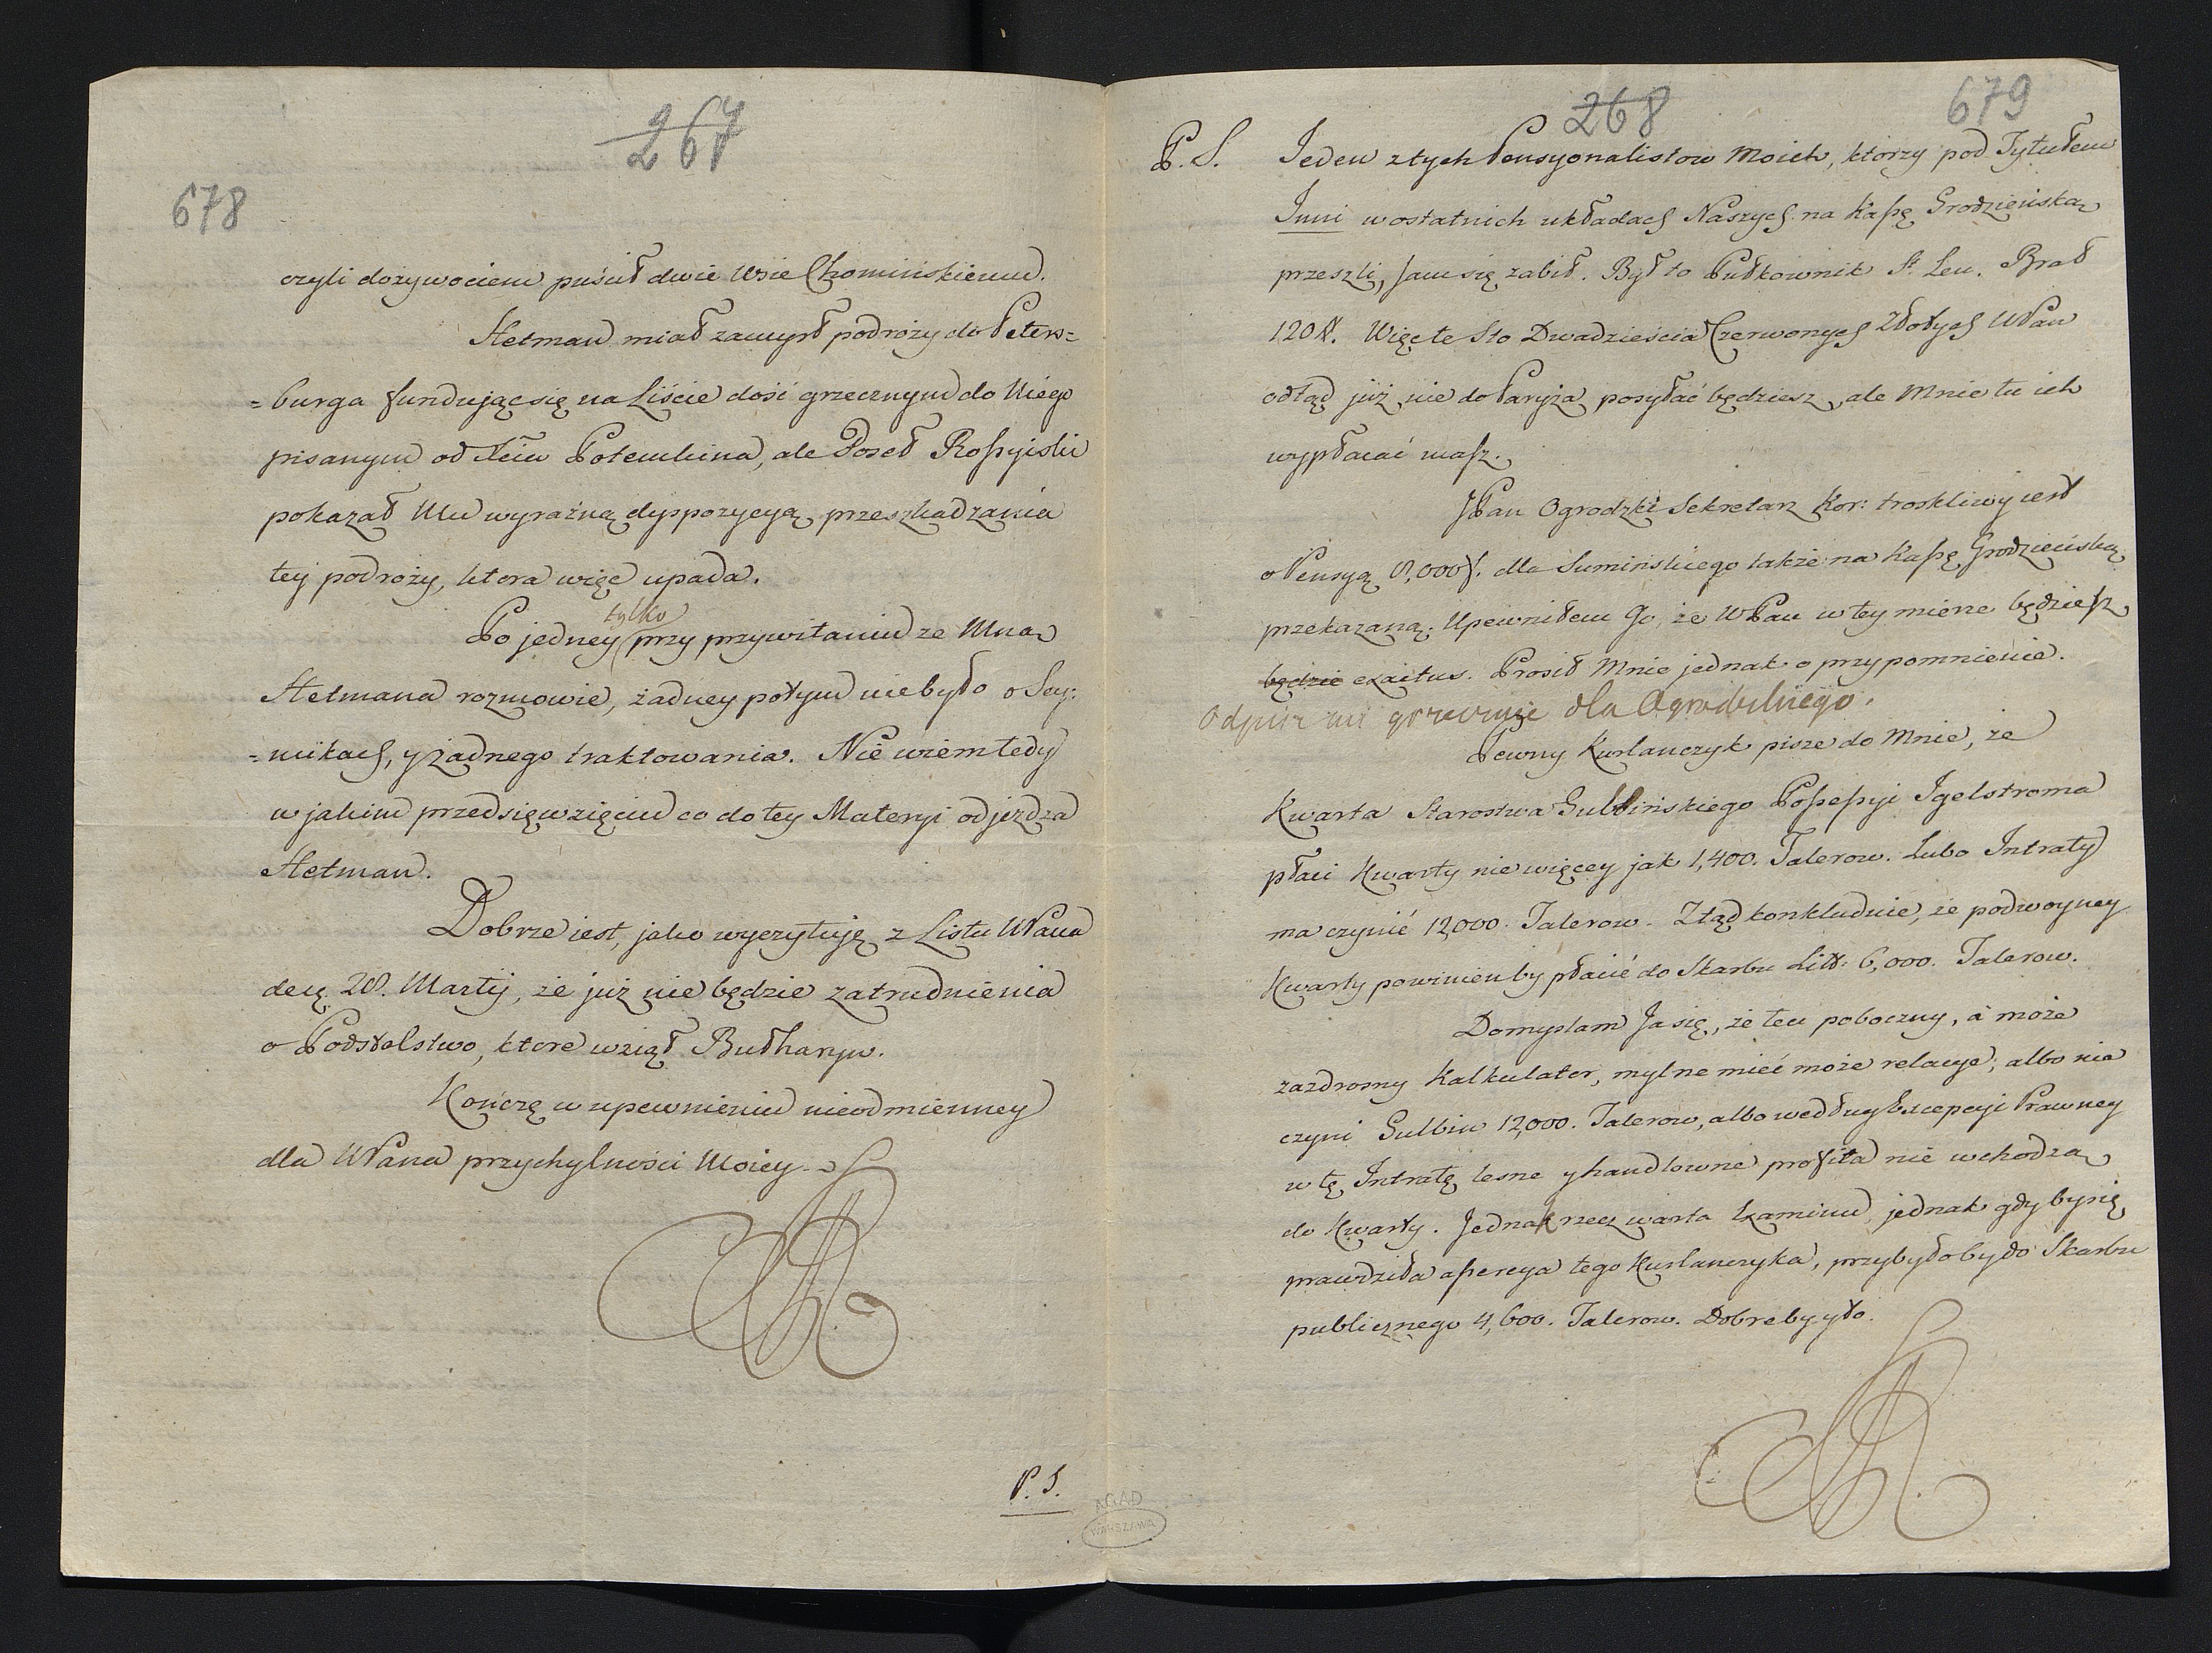 267
678
czyli dożywociem puścił dwie Wsie Chomińskiemu.
Hetman miał zamysł podroży do Peters=
=burga fundując się na Liście dość grzecznym do Niego
pisanym od Xcia Potemkina, ale Poseł Roßyiski
pokazał Mu wyraźną dyspozycyą przeszkadzania
tey podroży, ktora więc upada.
tylko
Po jedney przy przywitaniu ze Mną
Hetmana rozmowie, żadney potym nie było o Sey:
=mikach, y żadnego traktowania. Nie wiem tedy
w jakim przedsięwzięciu co do tey Materyi odjezdza
Hetman.
Dobrze iest, jako wyczytuję z Listu WPana
de 28. Martij, że już nie będzie zatrudnienia
o Podstolstwo, ktore wziął Bułharyn.
Kończę w upewnieniu nieodmienney
dla WPana przychylności Moiey.
P. S.
AGAD
WARSZAWA
268
679
P. S. Jeden z tych Pensyonalistow Moich, ktorzy pod Tytułem
Inni w ostatnich układach Naszych na Kaßę Grodzieńską
przeszli, sam się zabił. Był to Pułkownik St. Leu. Brał
120 #. Więc te Sto Dwadzieścia Czerwonych Złotych WPan
odtąd już nie do Paryża posyłać będziesz, ale Mnie tu ich
wypłacać masz.
JPan Ogrodzki Sekretarz Kor: troskliwy iest
o Pensyą 8,000 f. dla Sumińskiego także na Kaßę Grodzieńską
przekazaną; Upewniłem Go, że WPan w tey mierze będzieß
będzie exactus. Prosił Mnie jednak o przypomnienie.
Odpisz mi grzecznie dla Ogrodzkiego.
Pewny Kurlanczyk pisze do Mnie, że
Kwarta Starostwa Gulbińskiego Poßeßyi Igelstroma
płaci Kwarty nie więcey jak 1,400. Talerow. Lubo Intraty
ma czynić 12,000. Talerow. Ztąd konkluduie, że podwoyney
Kwarty powinien by płacić do Skarbu Litt: 6,000. Talerow.
Domyslam Ja się, że ten poboczny, a może
zazdrosny Kalkulator, mylne mieć może relacye; albo nie
czyni Gulbin 12,000. Talerow, albo według Excepcyi Prawney
w tę Intratę lesne y handlowne profita nie wchodzą
do Kwarty. Jednak rzecz warta Examinu, jednak gdyby się
prawdziła aßercya tego Kurlanczyka, przybyłoby do Skarbu
publicznego 4,600. Talerow. Dobre by y to.